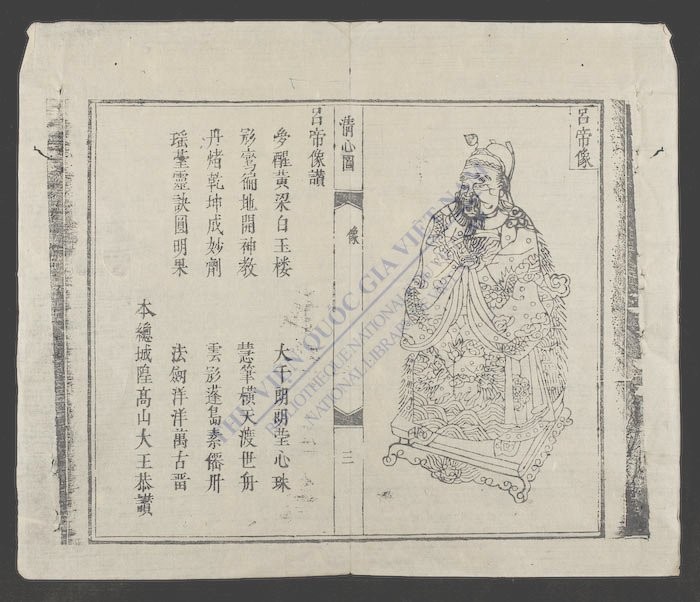 呂帝像
清心圖
像
三
呂帝像讃
夢醒黃梁白玉楼 大千朗明瑩心珠
彩鸞徧地開神教 慧筆橫天渡世舟
丹煑乾坤成妙劑 雲彩蓬島素儒冊
瑶臺靈訣圓明果 法劍洋洋萬古畱
本總城隍高山大王恭讃
THƯ VIỆN QUỐC GIA VIỆT NAM
BIBLIOTHÈQUE NATIONALE DU VIETNAM
NATIONAL LIBRARY OF VIETNAM